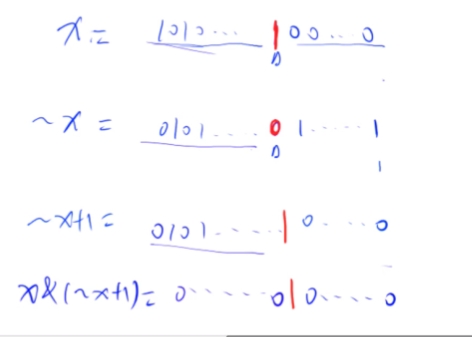 x = 1010... 1 00...0
~x = 0101.... 0 1.....1
1
~x+1 = 0101..... 1 0....0
x&(~x+1) = 0.....0 1 0....0